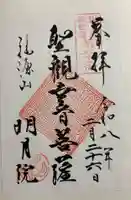 奉拝
令和八年
二月二十六日
聖観世音菩薩
福源山
明月院